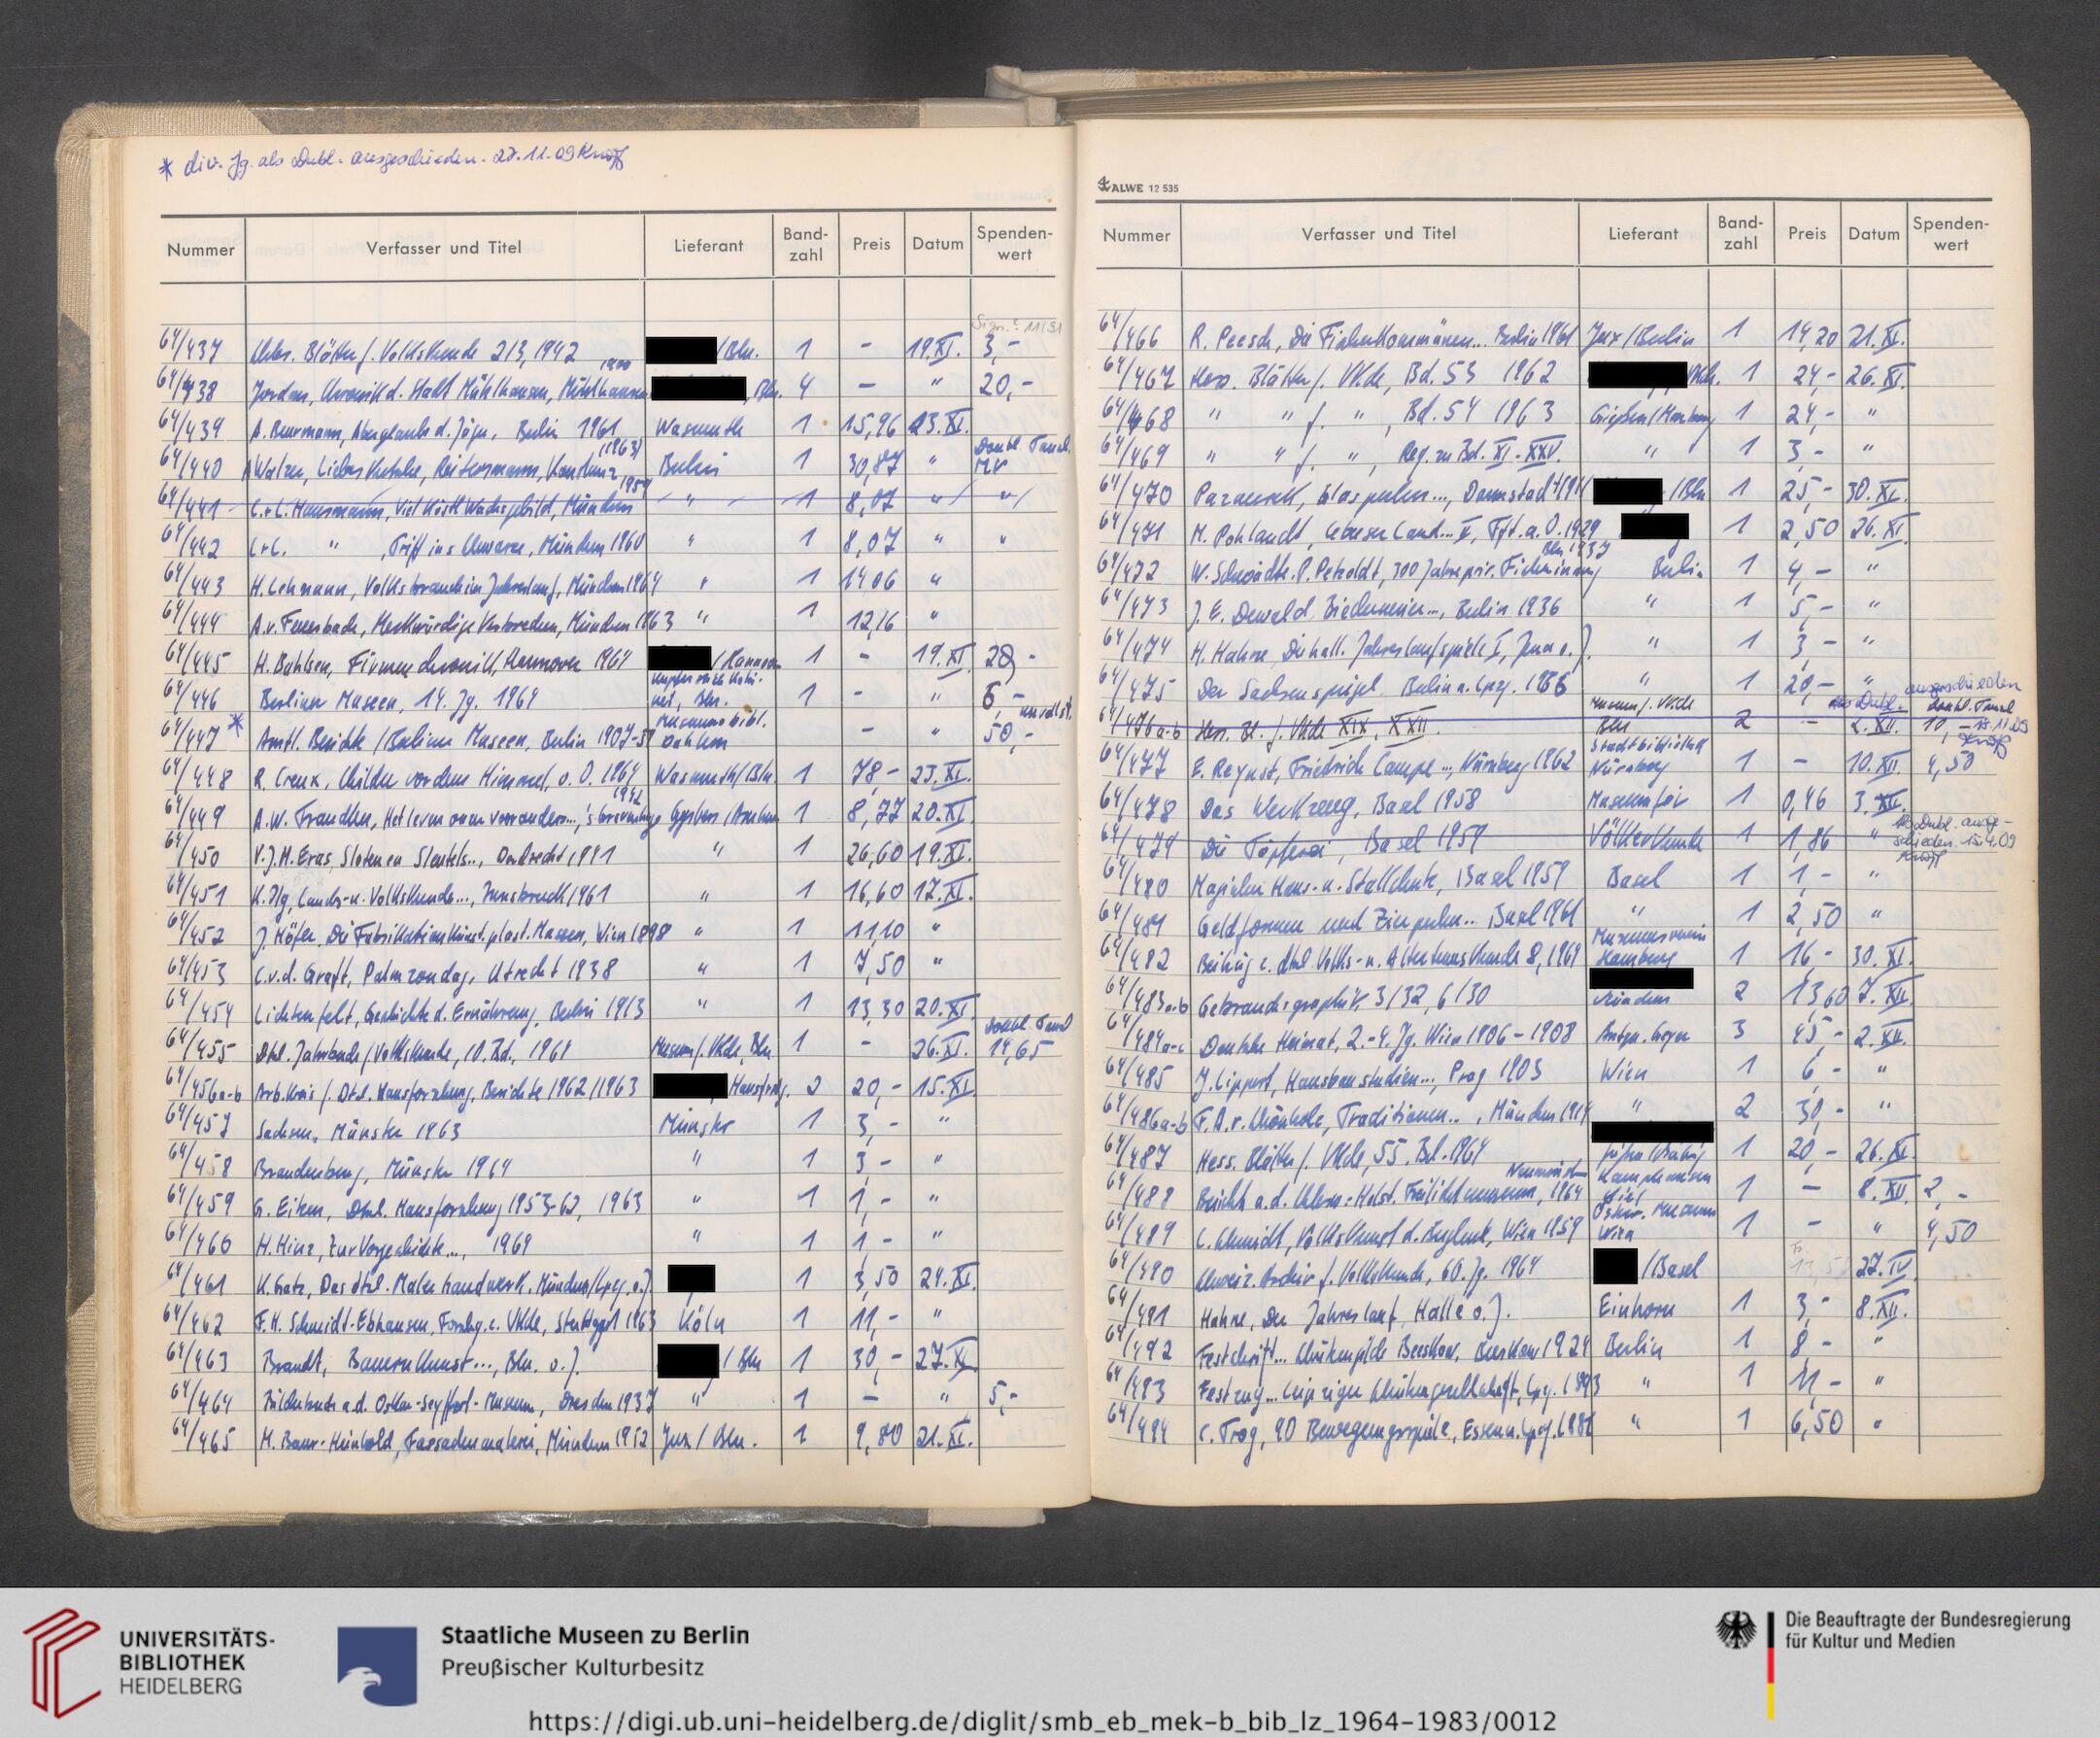 * div. Jg. als Dubl. ausgeschieden. 27.11.09
Nummer Verfasser und Titel Lieferant Band-zahl Preis Datum Spenden-wert
64/437 Blätter f. Volkskunde 2/3, 1942 /Bln. 1 - 19.XI. 3,-
64/438 Jordan, Chronik d. Stadt Mühlhausen, Mühlhausen 1900 , Bln. 4 - " 20,-
64/439 A. Beurmann, Aberglaube d. Jäger, Berlin 1961 Wasmuth 1 15,96 23.XI.
64/440 A. Walzer, Liebeskutsche, Reitersmann, Konstanz (1963) Berlin 1 30,87 "
64/441 C. + L. Hansmann, Viel köstl. Wachsgebild, München 1959 " 1 8,07 " "
64/442 L + C. " , Tritt ins Schwarze, München 1960 " 1 8,07 " "
64/443 H. Lehmann, Volksbrauch im Jahreslauf, München 1964 " 1 14 06 "
64/444 A. v. Feuerbach, Merkwürdige Verbrechen, München 1963 " 1 12,16 "
64/445 H. Bahlsen, Firmenchronik, Hannover 1964 /Hannover 1 - 19.XI 20,-
64/446 Berliner Museen, 14. Jg. 1964 Kupferstichkabinet, Bln. 1 - " 6,-
64/447 * Amtl. Berichte / Berliner Museen, Berlin 1907- Museumsbibl. Dahlem - " 50,-
64/448 R. Creux, Bilder vor dem Himmel, o. O. 1964 Wasmuth/Bln. 1 78,- 23.XI.
64/449 A. W. Franken, Het leven onzer voorouders..., 's Gravenhage 1942 Gysbers / Arnhem 1 8,77 20.XI.
64/450 V. J. M. Eras, Sloten en Sleutels.., Dordrecht 1941 " 1 26,60 19.XI.
64/451 K. Ilg, Landes- u. Volkskunde..., Innsbruck 1961 " 1 16,60 17.XI.
64/452 J. Höfer, Die Fabrikation künstl. plast. Massen, Wien 1898 " 1 11,10 "
64/453 C. v. d. Graft, Palmzondag, Utrecht 1938 " 1 7,50 "
64/454 Lichtenfelt, Geschichte d. Ernährung, Berlin 1913 " 1 13,30 20.XI.
64/455 Dtsch. Jahrbuch f. Volkskunde, 10. Bd., 1964 Museum f. Vkde, Bln 1 - 26.XI. 14,65
64/456a-b Arb.kreis f. Dtsch. Hausforschung, Berichte 1962/1963 Hausforschg. 2 20,- 15.XI
64/457 Sachsen, Münster 1963 Münster 1 3,- "
64/458 Brandenburg, Münster 1964 " 1 3,- "
64/459 G. Eitzen, Dtsch. Hausforschung 1953-62, 1963 " 1 1,- "
64/460 H. Hinz, Zur Vorgeschichte..., 1964 " 1 1,- "
64/461 K. Gatz, Das dtsch. Malerhandwerk, München/Lpzg. o. J. 1 3,50 24.XI.
64/462 F. H. Schmidt-Ebhausen, Forschg. z. Vkde, Stuttgart 1963 Köln 1 11,- "
64/463 Brandt, Bauernkunst..., Bln. o. J. / Bln 1 30,- 27.XI.
64/464 Bilderbuch a. d. Oskar-Seyffert-Museum, Dresden 1937 " 1 - " 5,-
64/465 M. Baur-Heinhold, Fassadenmalerei, München 1952 Jux / Bln. 1 9,80 21.XI.
ALWE 12 535
Nummer Verfasser und Titel Lieferant Band-zahl Preis Datum Spenden-wert
64/466 R. Peesch, Die Fischerkommünen... Berlin 1961 Jux/Berlin 1 14,20 21.XI.
64/467 Hess. Blätter f. Vkde, Bd. 53 1962 Vkde. 1 24,- 26.XI.
64/468 " " f. " , Bd. 54 1963 Gießen/Marburg 1 24,- "
64/469 " " f. " , Reg. zu Bd. XI-XXV. " 1 3,- "
64/470 Pazaurek, Glasperlen..., Darmstadt 1911 /Bln 1 25,- 30.XI.
64/471 M. Pohlandt, Lebuser Land... II, Fft. a. O. 1929 1 2,50 26.XI
64/472 W. Schwädtke, P. Petzoldt, 300 Jahre priv. Fischerinnung Bln. 1937 Berlin 1 4,- "
64/473 J. E. Dewald, Biedermeier..., Berlin 1936 " 1 5,- "
64/474 H. Hahne, Die hall. Jahreslaufspiele I, Jena o. J. " 1 3,- "
64/475 Der Sachsenspiegel. Berlin u. Lpzg. 1936 " 1 20,- "
64/476a-b Hess. Bl. f. Vkde XIX, XXII. Museum f. Vkde Bln 2 - 2.XII. 10,- als Dubl. ausgeschieden
64/477 E. Reynst, Friedrich Campe..., Nürnberg 1962 Stadtbibliothek Nürnberg 1 - 10.XII. 4,50
64/478 Das Werkzeug, Basel 1958 Museum für 1 0,46 3.XII.
64/479 Die Töpferei, Basel 1959 Völkerkunde 1 1,86 " Als Dubl. ausgeschieden. 15.4.09
64/480 Magischer Haus- u. Stallschutz, Basel 1959 Basel 1 1,- "
64/481 Geldformen und Zierperlen.. Basel 1961 " 1 2,50 "
64/482 Beiträge z. dtsch. Volks- u. Altertumskunde 8, 1964 Museumsverein Hamburg 1 16,- 30.XI.
64/483a-b Gebrauchsgraphik 3/32, 6/30 München 2 13,60 7.XII.
64/484a-c Deutsche Heimat, 2.-4. Jg. Wien 1906-1908 Antqu. Geyer 3 45,- 2.XII.
64/485 J. Lippert, Hausbaustudien..., Prag 1903 Wien 1 6,- "
64/486a-b F. A. v. Schönholz, Traditionen.., München 1914 " 2 30,- "
64/487 Hess. Blätter f. Vkde, 55. Bd. 1964 1 20,- 26.XI.
64/488 Bericht a. d. Schlesw.-Holst. Freilichtmuseum, 1964 Kiel 1 - 8.XII. 2,-
64/489 L. Schmidt, Volkskunst d. Burgenl., Wien 1959 Österr. Museum Wien 1 - " 4,50
64/490 Schweiz. Archiv f. Volkskunde, 60. Jg. 1964 /Basel 27.IV
64/491 Hahne, Der Jahreslauf, Halle o. J. Einhorn 1 3,- 8.XII.
64/492 Festschrift... Schützengilde Beeskow, Beeskow 1924 Berlin 1 8,- "
64/493 Festzug... Leipziger Schützengesellschaft, Lpzg. 1893 " 1 11,- "
64/494 C. Trog, 90 Bewegungsspiele, Essen u. Lpzg. " 1 6,50 "
UNIVERSITÄTS-
BIBLIOTHEK
HEIDELBERG
Staatliche Museen zu Berlin
Preußischer Kulturbesitz
Die Beauftragte der Bundesregierung
für Kultur und Medien
https://digi.ub.uni-heidelberg.de/diglit/smb_eb_mek-b_bib_lz_1964-1983/0012